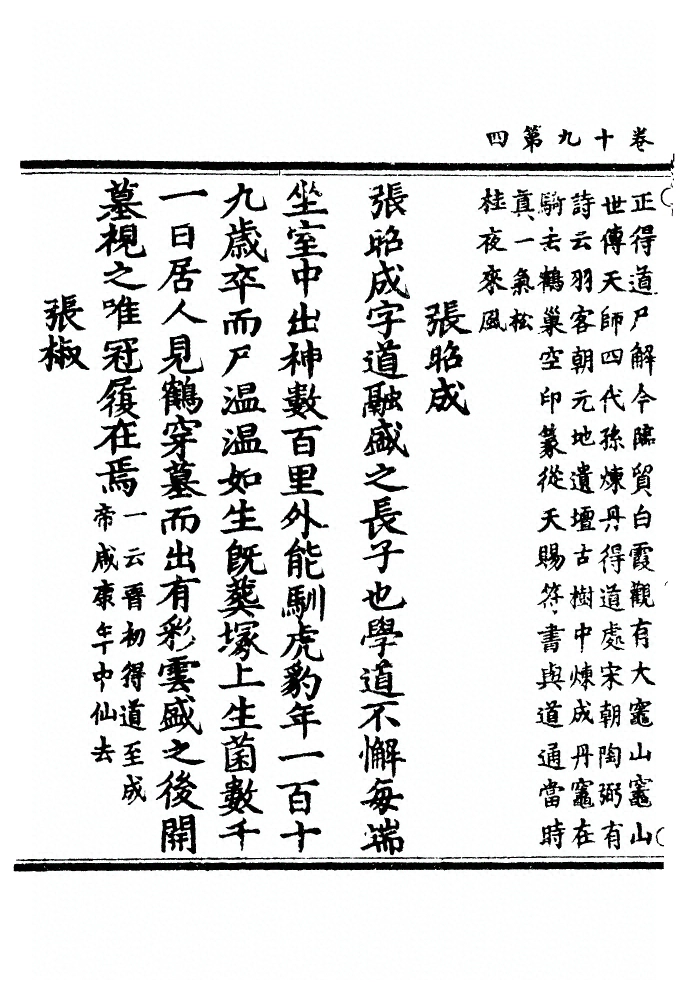 卷十九第四
正得道尸解今臨貢白霞觀有大竈山竈山
世傳天師四代孫煉丹得道處宋朝陶弼有
詩云羽客朝元地遺壇古樹中煉成丹竈在
騎去鶴巢空印篆從天賜符書與道通當時
真一氣松
桂夜來風
張昭成
張昭成字道融盛之長子也學道不懈每端
坐室中出神數百里外能馴虎豹年一百十
九歲卒而尸温温如生既葬塚上生菌數千
一日居人見鶴穿墓而出有彩雲盛之後開
墓視之唯冠履在焉
一云晉初得道至成
帝咸康午中仙去
張椒